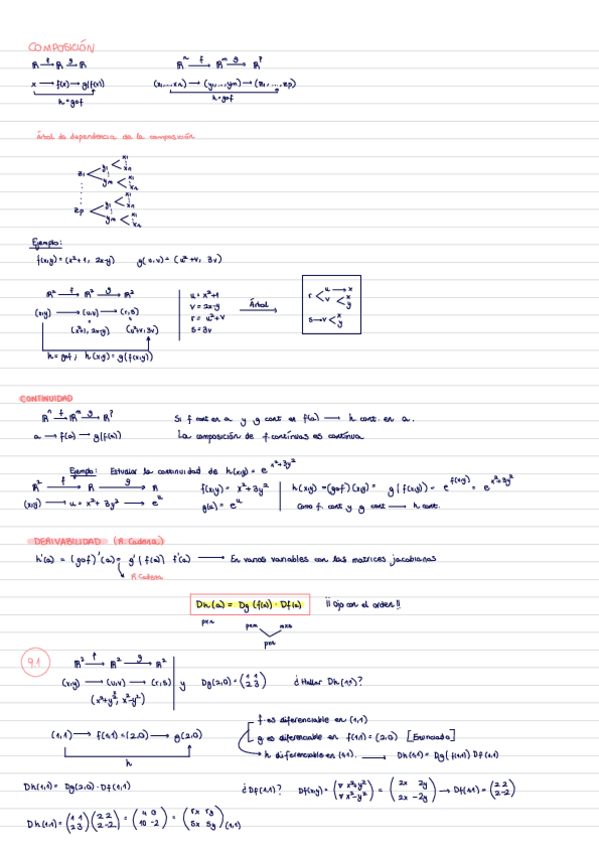 COMPOSICIÓN
R —f→ R —g→ R
Rⁿ —f→ Rᵐ —g→ Rᵖ
x → f(x) → g(f(x))
(x₁,...,xₙ) → (y₁,...,yₘ) → (z₁,...,zₚ)
h = gof
h = gof
Árbol de dependencia de la composición
z₁ < y₁ < x₁ xₙ
yₘ < x₁ xₙ
zₚ < y₁ < x₁ xₙ
yₘ < x₁ xₙ
Ejemplo:
f(x,y) = (x²+1, 2x-y) g(u,v) = (u²+v, 3v)
R² —f→ R² —g→ R²
(x,y) → (u,v) → (r,s)
(x²+1, 2x-y) (u²+v, 3v)
h = gof ; h(x,y) = g(f(x,y))
u = x²+1
v = 2x-y
r = u²+v
s = 3v
Árbol
r < u → x
v < x y
s → v < x y
CONTINUIDAD
Rⁿ —f→ Rᵐ —g→ Rᵖ Si f cont en a y g cont en f(a) → h cont. en a.
a → f(a) → g(f(a)) La composición de f. continuas es continua
Ejemplo: Estudiar la continuidad de h(x,y) = e^(x²+3y²)
R² —f→ R —g→ R f(x,y) = x²+3y² h(x,y) = (gof)(x,y) = g(f(x,y)) = e^(f(x,y)) = e^(x²+3y²)
(x,y) → u = x²+3y² → eᵘ g(u) = eᵘ Como f. cont y g cont → h cont.
DERIVABILIDAD (R. Cadena)
h'(a) = (gof)'(a) = g'(f(a)) f'(a) → En varias variables con las matrices jacobianas
R. Cadena
Dh(a) = Dg(f(a)) · Df(a) ¡¡ Ojo con el orden !!
pxn pxm mxn
pxn
9.1
R² —f→ R² —g→ R²
(x,y) → (u,v) → (r,s) y Dg(2,0) = (1 1 / 2 3) ¿Hallar Dh(1,1)?
(x²+y², x²-y²)
(1,1) → f(1,1) = (2,0) → g(2,0)
h
f es diferenciable en (1,1)
g es diferenciable en f(1,1) = (2,0) [Enunciado]
h diferenciable en (1,1). → Dh(1,1) = Dg(f(1,1)) Df(1,1)
Dh(1,1) = Dg(2,0) · Df(1,1) ¿Df(1,1)? Df(x,y) = (∇ x²+y² / ∇ x²-y²) = (2x 2y / 2x -2y) → Df(1,1) = (2 2 / 2 -2)
Dh(1,1) = (1 1 / 2 3) (2 2 / 2 -2) = (4 0 / 10 -2) = (rx ry / sx sy)(1,1)